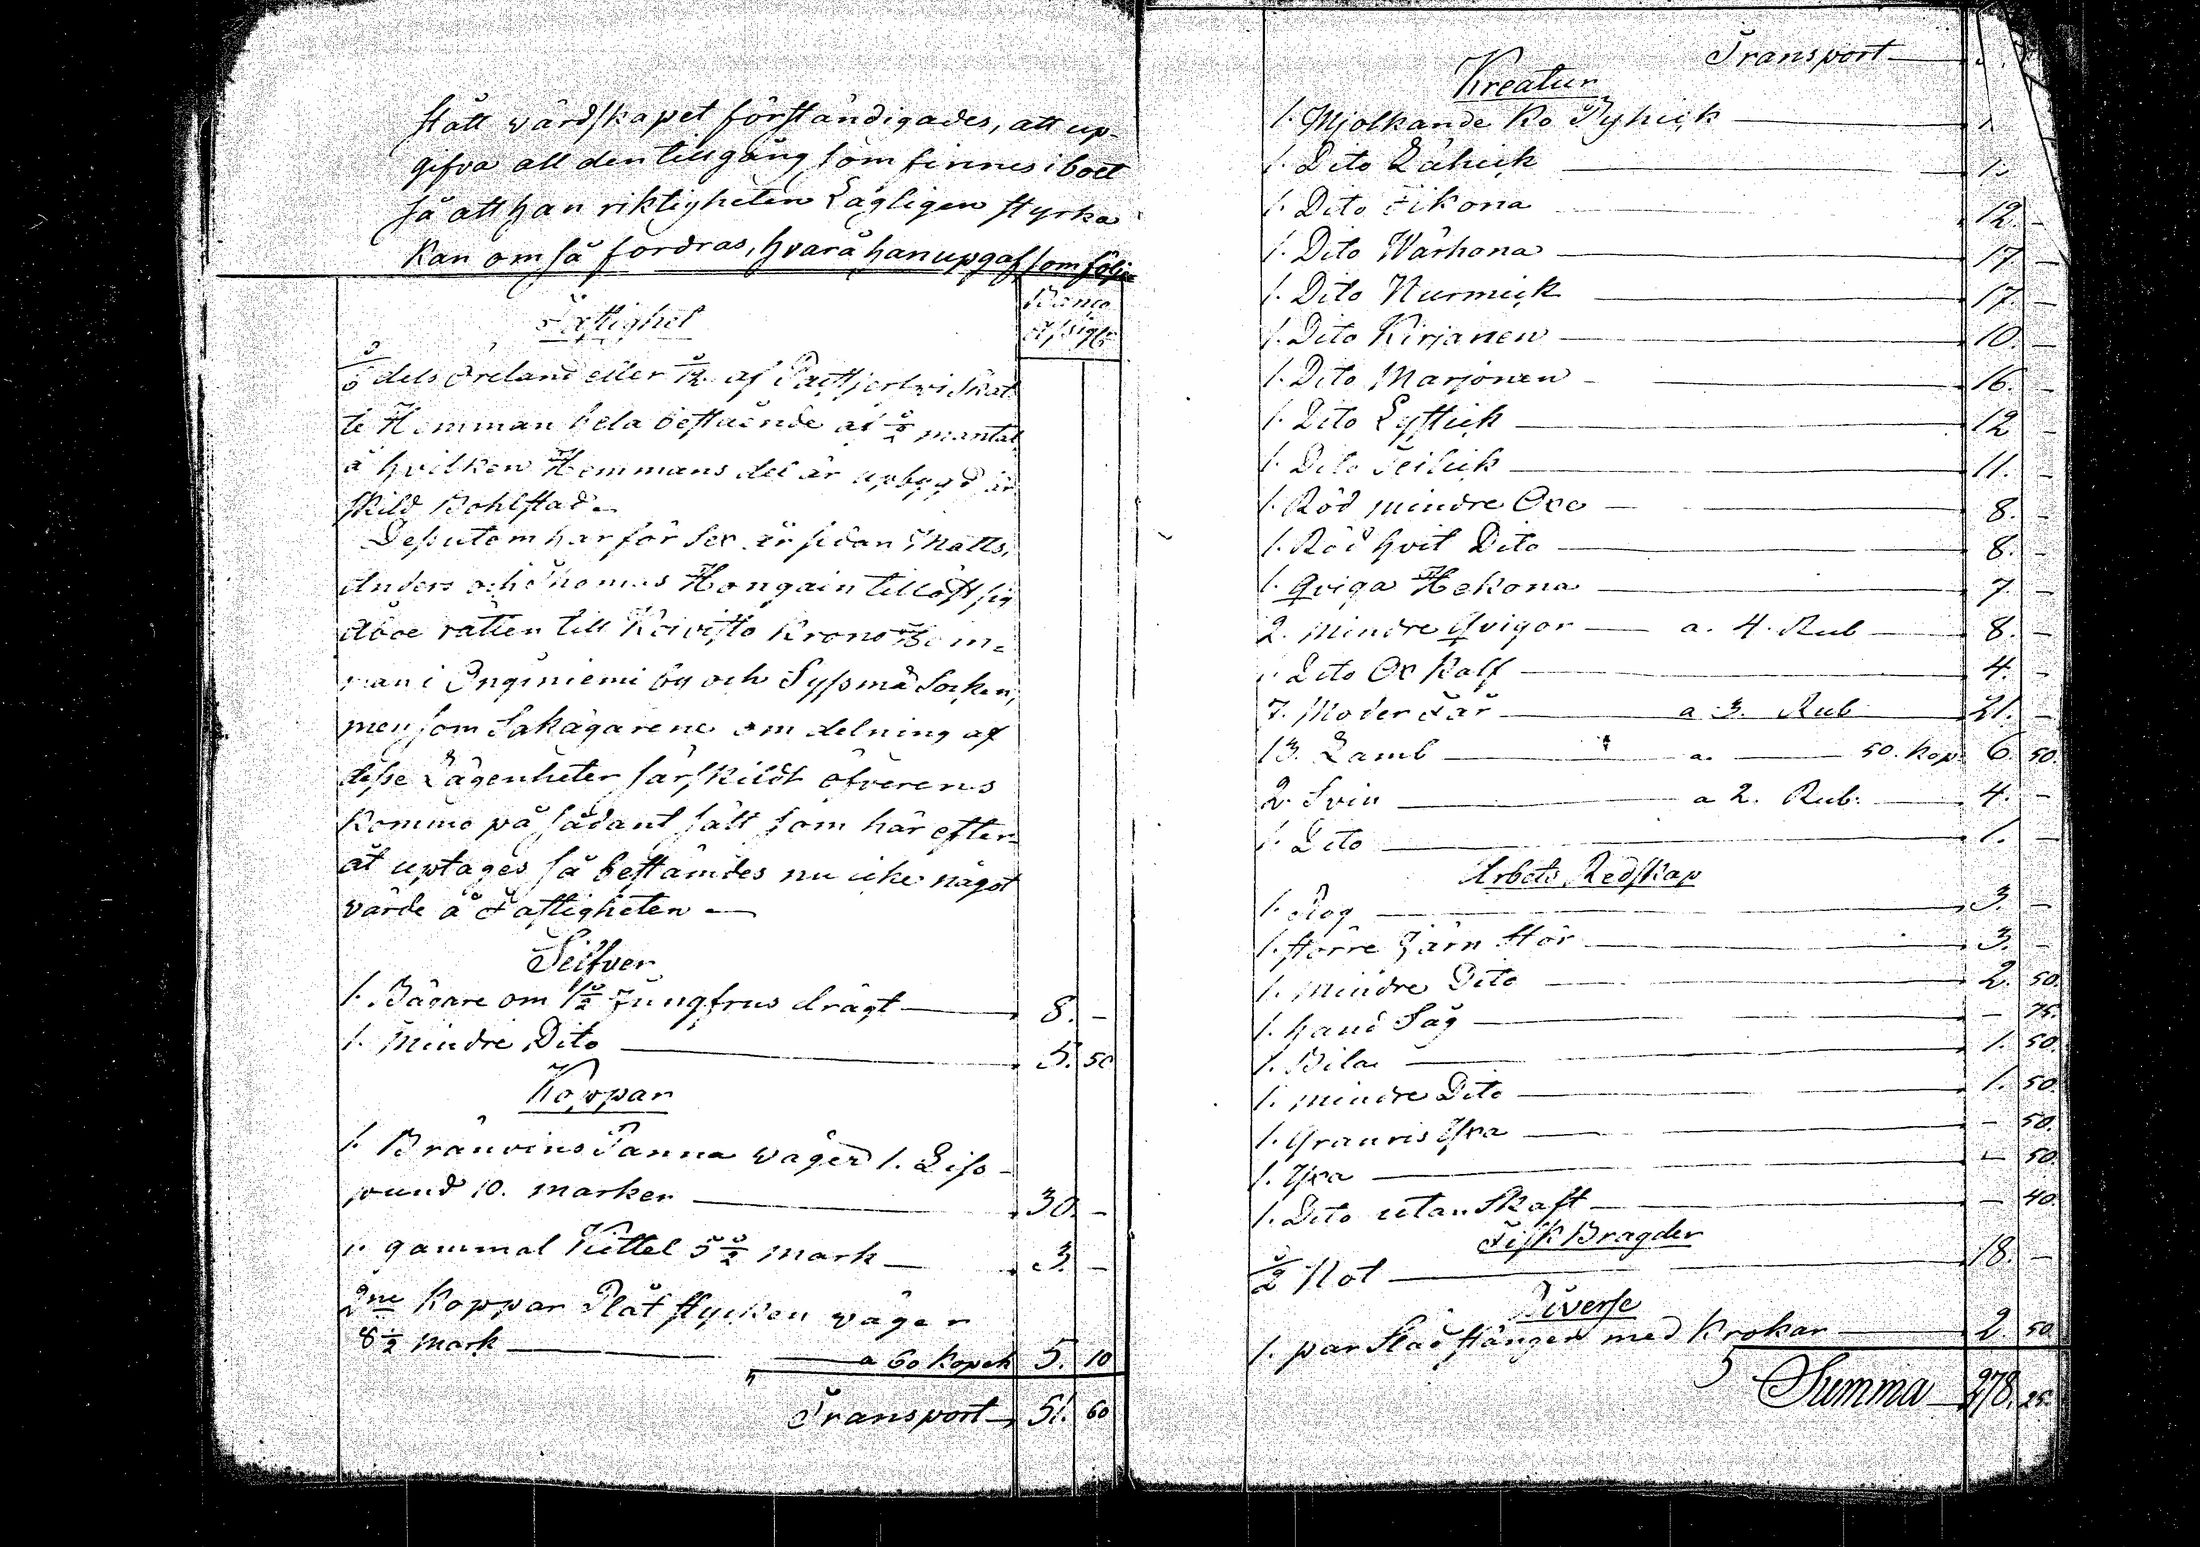 stått värdskapet förständigades, att up-
gifva all den tillgång som finnes i boet
så att han riktigheten Lagligen styrka
kan om så fordras, hvarå han upgaf som följer
Banco
Fastighet
dels Öreland eller af skat-
te Hemman hela bestående af mantal
å hvilken Hemmans del är upbygd är
skild Bohlstad.
Desutom har för sex år sedan Matts,
Anders och Thomas Hongain tillöst sig
åboe rätten till Koivisto Krono Hem-
man i Onginiemi by och Sysmä Socken,
men som Sakägarene om delning af
desse Lägenheter särskildt öfverens
kommo på sådant sätt som här efter-
åt uptages så bestämdes nu icke något
värde å Fastigheten
Silfver
1. Bägare om 1 1/2 Jungfrus drägt 8. -
1. Mindre Dito 5. 50
Koppar
1. Bränvins Panna väger 1. Liss-
pund 10. marker 30. -
1. gammal Kittel 5 1/2 mark 3. -
2ne Koppar Plåt stycken väger
8 1/2 mark a 60 Kopek 5. 10
Transport 51. 60
Transport
Kreatur
1. Mjolkande Ko Pyhick
1. Dito Lähick
1. Dito Fikona 12. -
1. Dito Wärhona 17. -
1. Dito Nurmick 17. -
1. Dito Kirjanen 10. -
1. Dito Marjonen 16. -
1. Dito Lystick 12 -
1. Dito Teilick 11. -
1. Röd mindre Oxe 8. -
1. Röd hvit Dito 8. -
1. Qviga Hekona 7. -
2. Mindre Qvigor a. 4. Rub 8. -
1. Dito Ox Kalf 4. -
7. Moder Får a 3. Rub 21. -
13. Lamb a. 50. Kop 6. 50.
2. Svin a 2. Rub. 4. -
1. Dito 1. -
Arbets Redskap
1. Plog 3. -
1. större Järn stör 3. -
1. mindre Dito 2. 50.
1. hand Såg - 75.
1. Bila 1. 50.
1. mindre Dito 1. 50.
1. Granris Yxa - 50.
1. Yxa - 50.
1. Dito utan Skaft - 40.
Fisk Bragder
1/2 Not 18. -
Diverse
1. par stänger med Krokar 2. 50
Summa 278. 25.